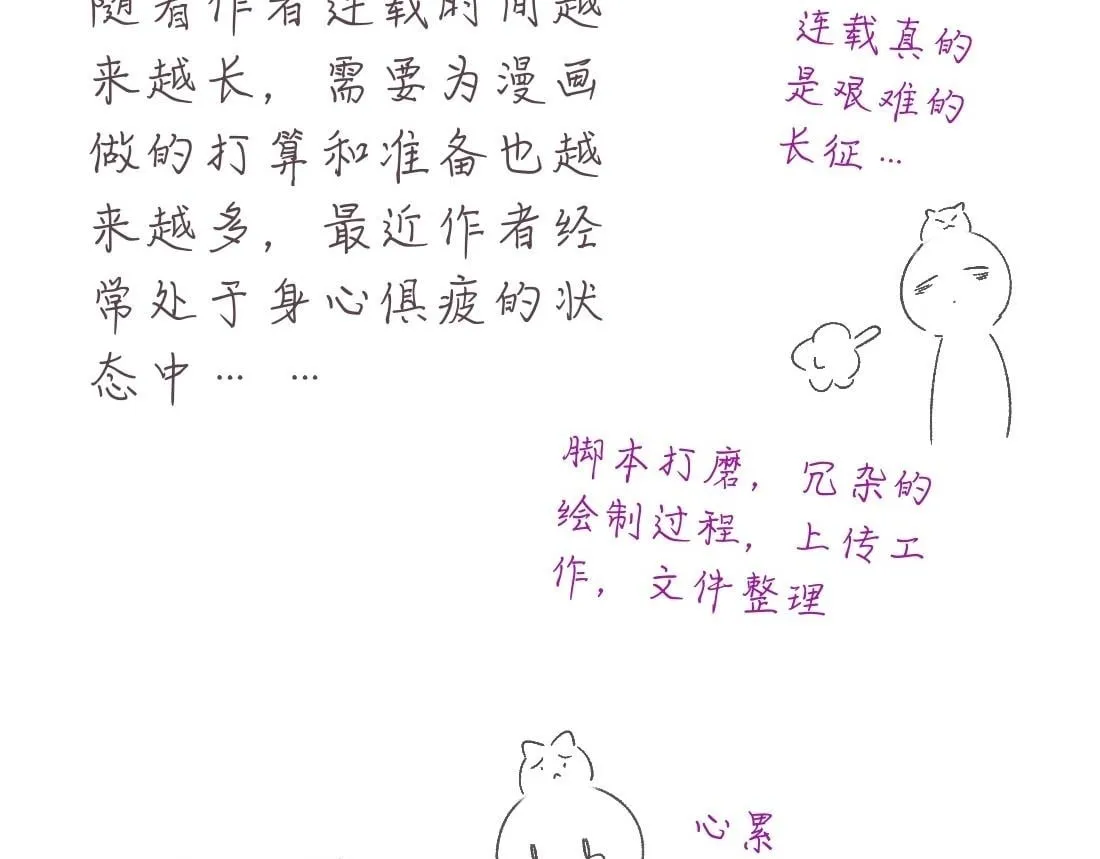 随着作者连载时间越
来越长，需要为漫画
做的打算和准备也越
来越多，最近作者经
常处于身心俱疲的状
态中… …
连载真的
是艰难的
长征…
脚本打磨，冗杂的
绘制过程，上传工
作，文件整理
心累